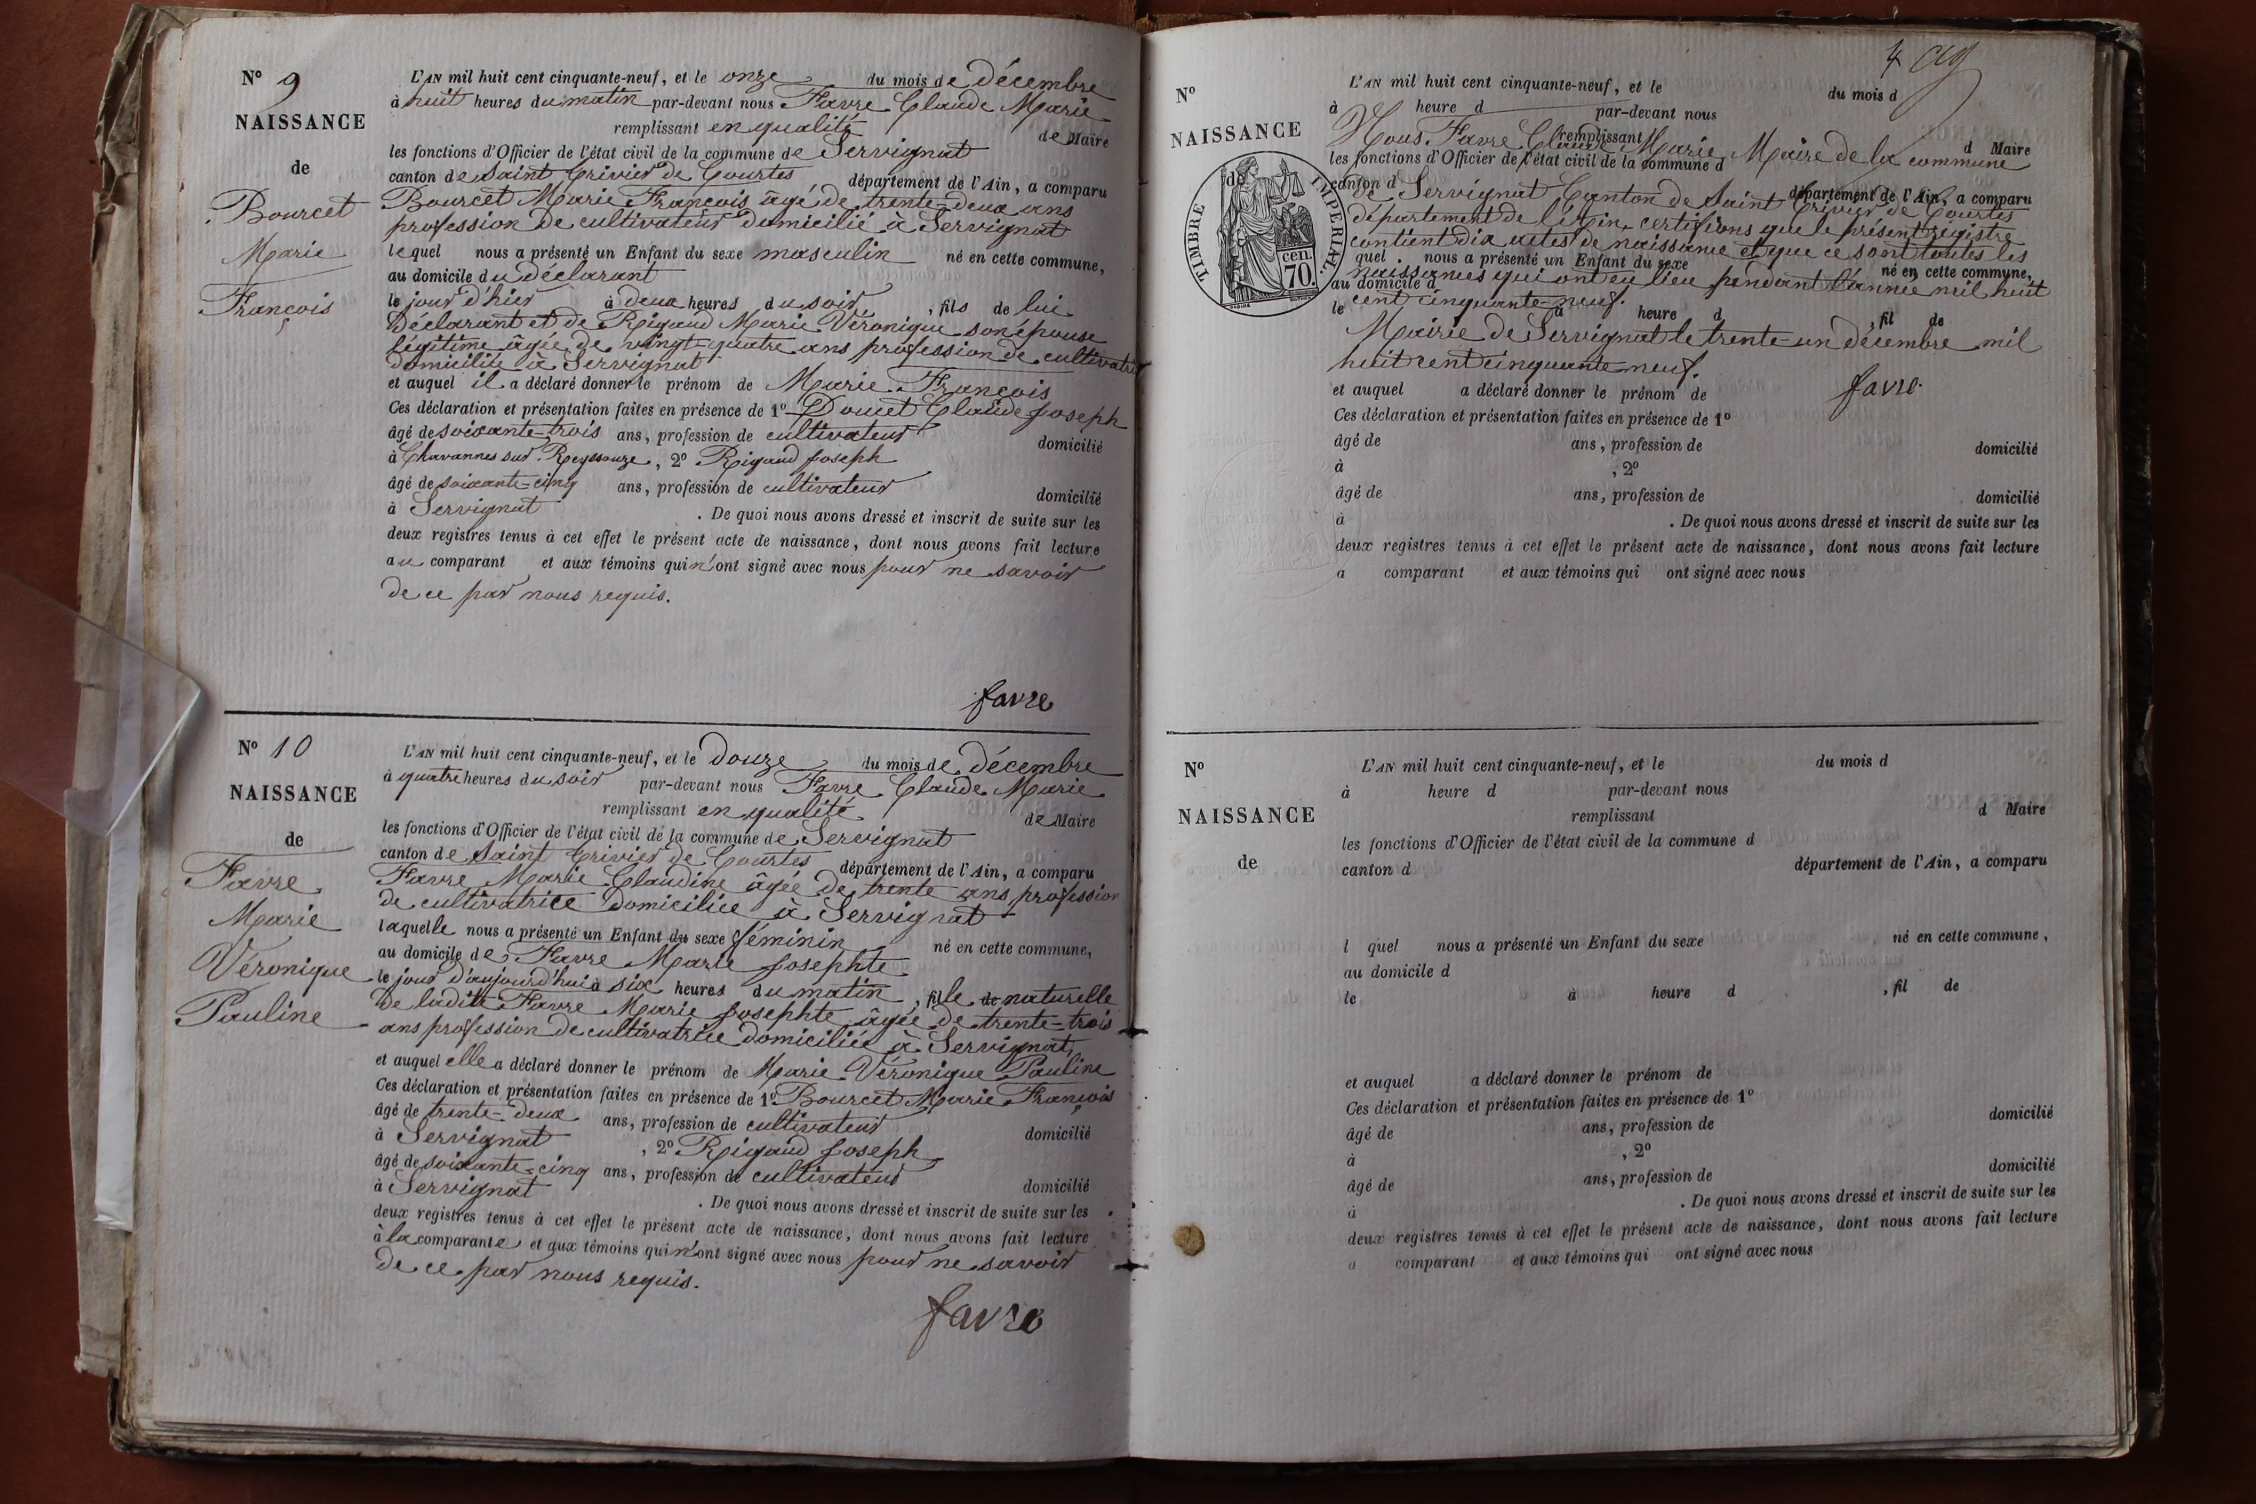 N° 9
NAISSANCE
de
Bourcet
Marie
François
L'AN mil huit cent cinquante-neuf, et le onze du mois de décembre
à huit heures du matin par-devant nous Favre Claude Marie
remplissant en qualité de Maire
les fonctions d'Officier de l'état civil de la commune de Servignat
canton de Saint Trivier de Courtes département de l'Ain, a comparu
Bourcet Marie François âgé de trente-deux ans
profession de cultivateur domicilié à Servignat
lequel nous a présenté un Enfant du sexe masculin né en cette commune,
au domicile du déclarant
le jour d'hier à deux heures du soir, fils de lui
déclarant et de Rigaud Marie Véronique son épouse
légitime âgée de vingt-quatre ans profession de cultivatrice
domiciliée à Servignat
et auquel il a déclaré donner le prénom de Marie François
Ces déclaration et présentation faites en présence de 1° Doucet Claude Joseph
âgé de soixante-trois ans, profession de cultivateur domicilié
à Chavannes sur Reyssouze, 2° Rigaud Joseph
âgé de soixante-cinq ans, profession de cultivateur domicilié
à Servignat. De quoi nous avons dressé et inscrit de suite sur les
deux registres tenus à cet effet le présent acte de naissance, dont nous avons fait lecture
au comparant et aux témoins qui n'ont signé avec nous pour ne savoir
de ce par nous requis.
favre
N° 10
NAISSANCE
de
Favre
Marie
Véronique
Pauline
L'AN mil huit cent cinquante-neuf, et le Douze du mois de décembre
à quatre heures du soir par-devant nous Favre Claude Marie
remplissant en qualité de Maire
les fonctions d'Officier de l'état civil de la commune de Servignat
canton de Saint Trivier de Courtes département de l'Ain, a comparu
Favre Marie Claudine âgée de trente ans profession
de cultivatrice domiciliée à Servignat
laquelle nous a présenté un Enfant du sexe féminin né en cette commune,
au domicile de Favre Marie Josephte
le jour d'aujourd'hui à six heures du matin, fille de naturelle
de ladite Favre Marie Josephte âgée de trente-trois
ans profession de cultivatrice domiciliée à Servignat
et auquel elle a déclaré donner le prénom de Marie Véronique Pauline
Ces déclaration et présentation faites en présence de 1° Bourcet Marie François
âgé de trente-deux ans, profession de cultivateur domicilié
à Servignat, 2° Rigaud Joseph
âgé de soixante-cinq ans, profession de cultivateur domicilié
à Servignat. De quoi nous avons dressé et inscrit de suite sur les
deux registres tenus à cet effet le présent acte de naissance, dont nous avons fait lecture
à la comparante et aux témoins qui n'ont signé avec nous pour ne savoir
de ce par nous requis.
favre
4
N°
NAISSANCE
de
TIMBRE IMPERIAL.
70. cen.
L'AN mil huit cent cinquante-neuf, et le du mois d
à heure d par-devant nous
remplissant d Maire
Nous Favre Claude Marie Maire de la commune
les fonctions d'Officier de l'état civil de la commune d
canton d département de l'Ain, a comparu
de Servignat Canton de Saint Trivier de Courtes
département de l'Ain, certifions que le présent registre
contient dix actes de naissance et que ce sont toutes les
quel nous a présenté un Enfant du sexe né en cette commune,
naissances qui ont eu lieu pendant l'année mil huit
au domicile d
cent cinquante-neuf.
le à heure d, fil de
Mairie de Servignat le trente-un décembre mil
huit cent cinquante-neuf.
favre
et auquel a déclaré donner le prénom de
Ces déclaration et présentation faites en présence de 1°
âgé de ans, profession de domicilié
à , 2°
âgé de ans, profession de domicilié
à . De quoi nous avons dressé et inscrit de suite sur les
deux registres tenus à cet effet le présent acte de naissance, dont nous avons fait lecture
a comparant et aux témoins qui ont signé avec nous
N°
NAISSANCE
de
L'AN mil huit cent cinquante-neuf, et le du mois d
à heure d par-devant nous
remplissant d Maire
les fonctions d'Officier de l'état civil de la commune d
canton d département de l'Ain, a comparu
l quel nous a présenté un Enfant du sexe né en cette commune,
au domicile d
le à heure d , fil de
et auquel a déclaré donner le prénom de
Ces déclaration et présentation faites en présence de 1°
âgé de ans, profession de domicilié
à , 2°
âgé de ans, profession de domicilié
à . De quoi nous avons dressé et inscrit de suite sur les
deux registres tenus à cet effet le présent acte de naissance, dont nous avons fait lecture
a comparant et aux témoins qui ont signé avec nous